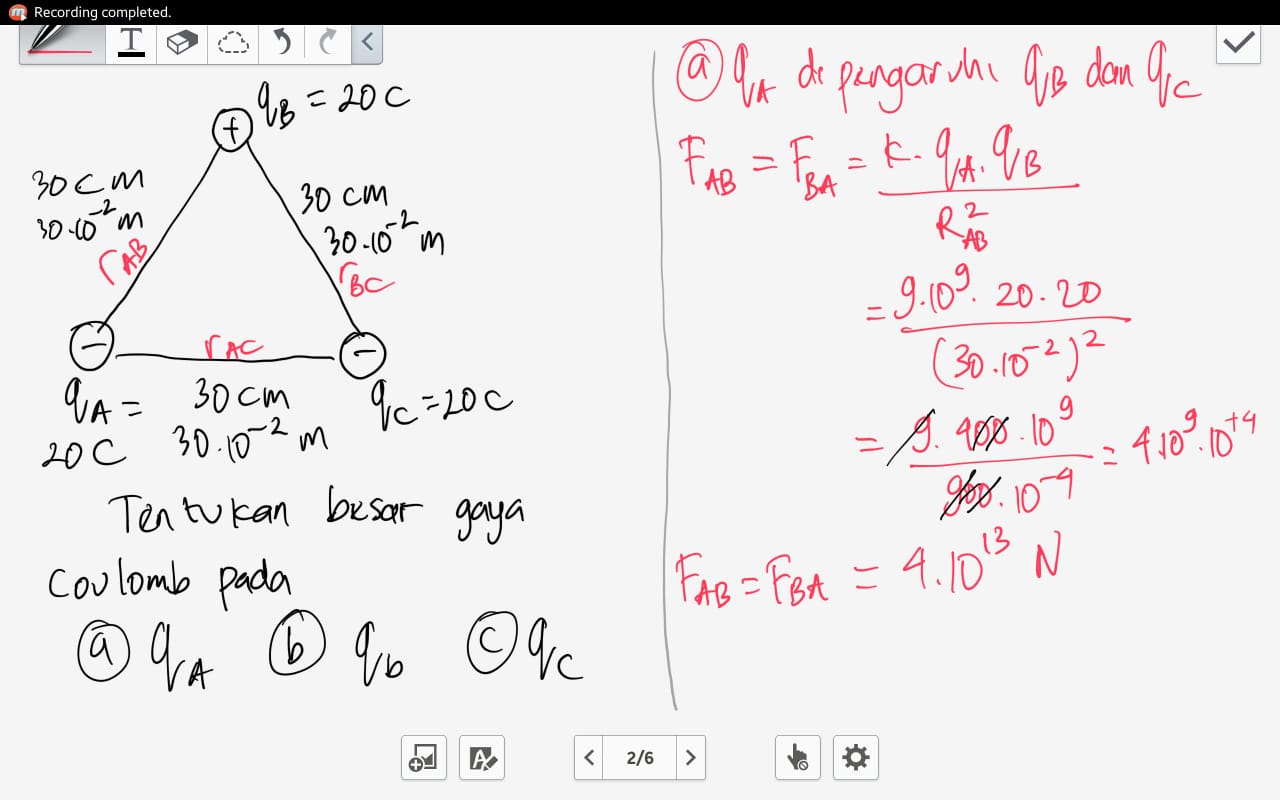 Recording completed.
T
qB = 20 C
30 cm
30.10⁻² m
rAB
30 cm
30.10⁻² m
rBC
rAC
qA =
20 C
30 cm
30.10⁻² m
qC = 20 C
Tentukan besar gaya
Coulomb pada
ⓐ qA ⓑ qb ⓒ qC
ⓐ qA di pengaruhi qB dan qC
FAB = FBA = k. qA. qB
R²AB
= 9.10⁹. 20. 20
(30.10⁻²)²
= 9. 400. 10⁹ = 4.10⁹.10⁺⁴
900. 10⁻⁴
FAB = FBA = 4.10¹³ N
2/6